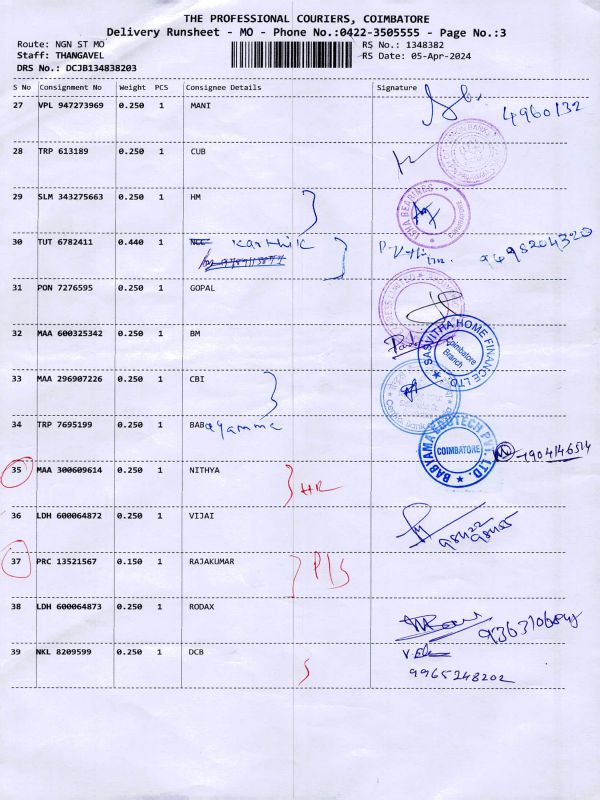 THE PROFESSIONAL COURIERS, COIMBATORE
Delivery Runsheet - MO - Phone No.:0422-3505555 - Page No.:3
Route: NGN ST MO
Staff: THANGAVEL
DRS No.: DCJB134838203
RS No.: 1348382
RS Date: 05-Apr-2024
S No Consignment No Weight PCS Consignee Details Signature
27 VPL 947273969 0.250 1 MANI
4960132
28 TRP 613189 0.250 1 CUB
29 SLM 343275663 0.250 1 HM
BEARINGS
30 TUT 6782411 0.440 1 NGC Karthik
9498204320
31 PON 7276595 1 GOPAL
32 MAA 600325342 0.250 1 BM
SASVITHA HOME FINANCE LTD.
Coimbatore Branch
33 MAA 296907226 0.250 1 CBI
34 TRP 7695199 0.250 1 BABayamma
BABYAMA EDUTECH PVT. LTD.
COIMBATORE
35 MAA 300609614 0.250 1 NITHYA
HR
36 LDH 600064872 0.250 1 VIJAI
98422
98455
37 PRC 13521567 0.150 1 RAJAKUMAR
P/S
38 LDH 600064873 0.250 1 RODAX
39 NKL 8209599 0.250 1 DCB
9965248202